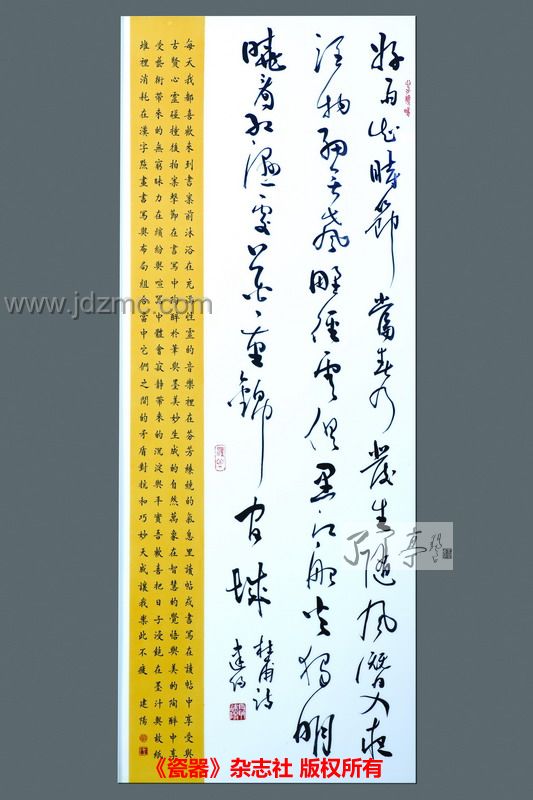 好雨知時節當春乃發生隨風潛入夜
潤物細無聲野徑雲俱黑江船火獨明
曉看紅濕處花重錦官城
杜甫詩
建陽
每天我都喜歡來到書案前沐浴在充滿性靈的音樂裡在芬芳繚繞的氣息里讀帖或書寫在讀帖中享受與
古賢心靈碰撞後拍案擊節在書寫中陶醉於筆與墨美妙生成的自然萬象在智慧的覺悟與美的陶醉中享
受藝術帶來的無窮昧力在繽紛與喧囂中體會寂靜帶來的沉淀與平實吾歡喜把日子浸在墨汁與故紙
堆裡消耗在漢字點畫書寫與布局組合當中它們之間的矛盾對抗和巧妙天成讓我樂此不疲 建陽
www.jdzmc.com
了了亭
《瓷器》杂志社 版权所有